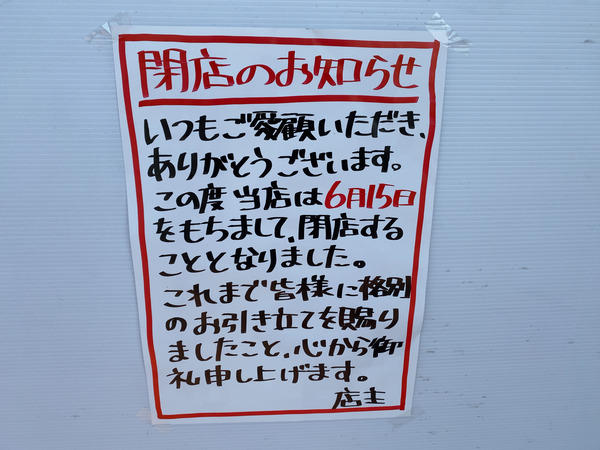 閉店のお知らせ
いつもご愛顧いただき、
ありがとうございます。
この度当店は6月15日
をもちまして、閉店する
こととなりました。
これまで皆様に格別
のお引き立てを賜り
ましたこと、心から御
礼申し上げます。
店主